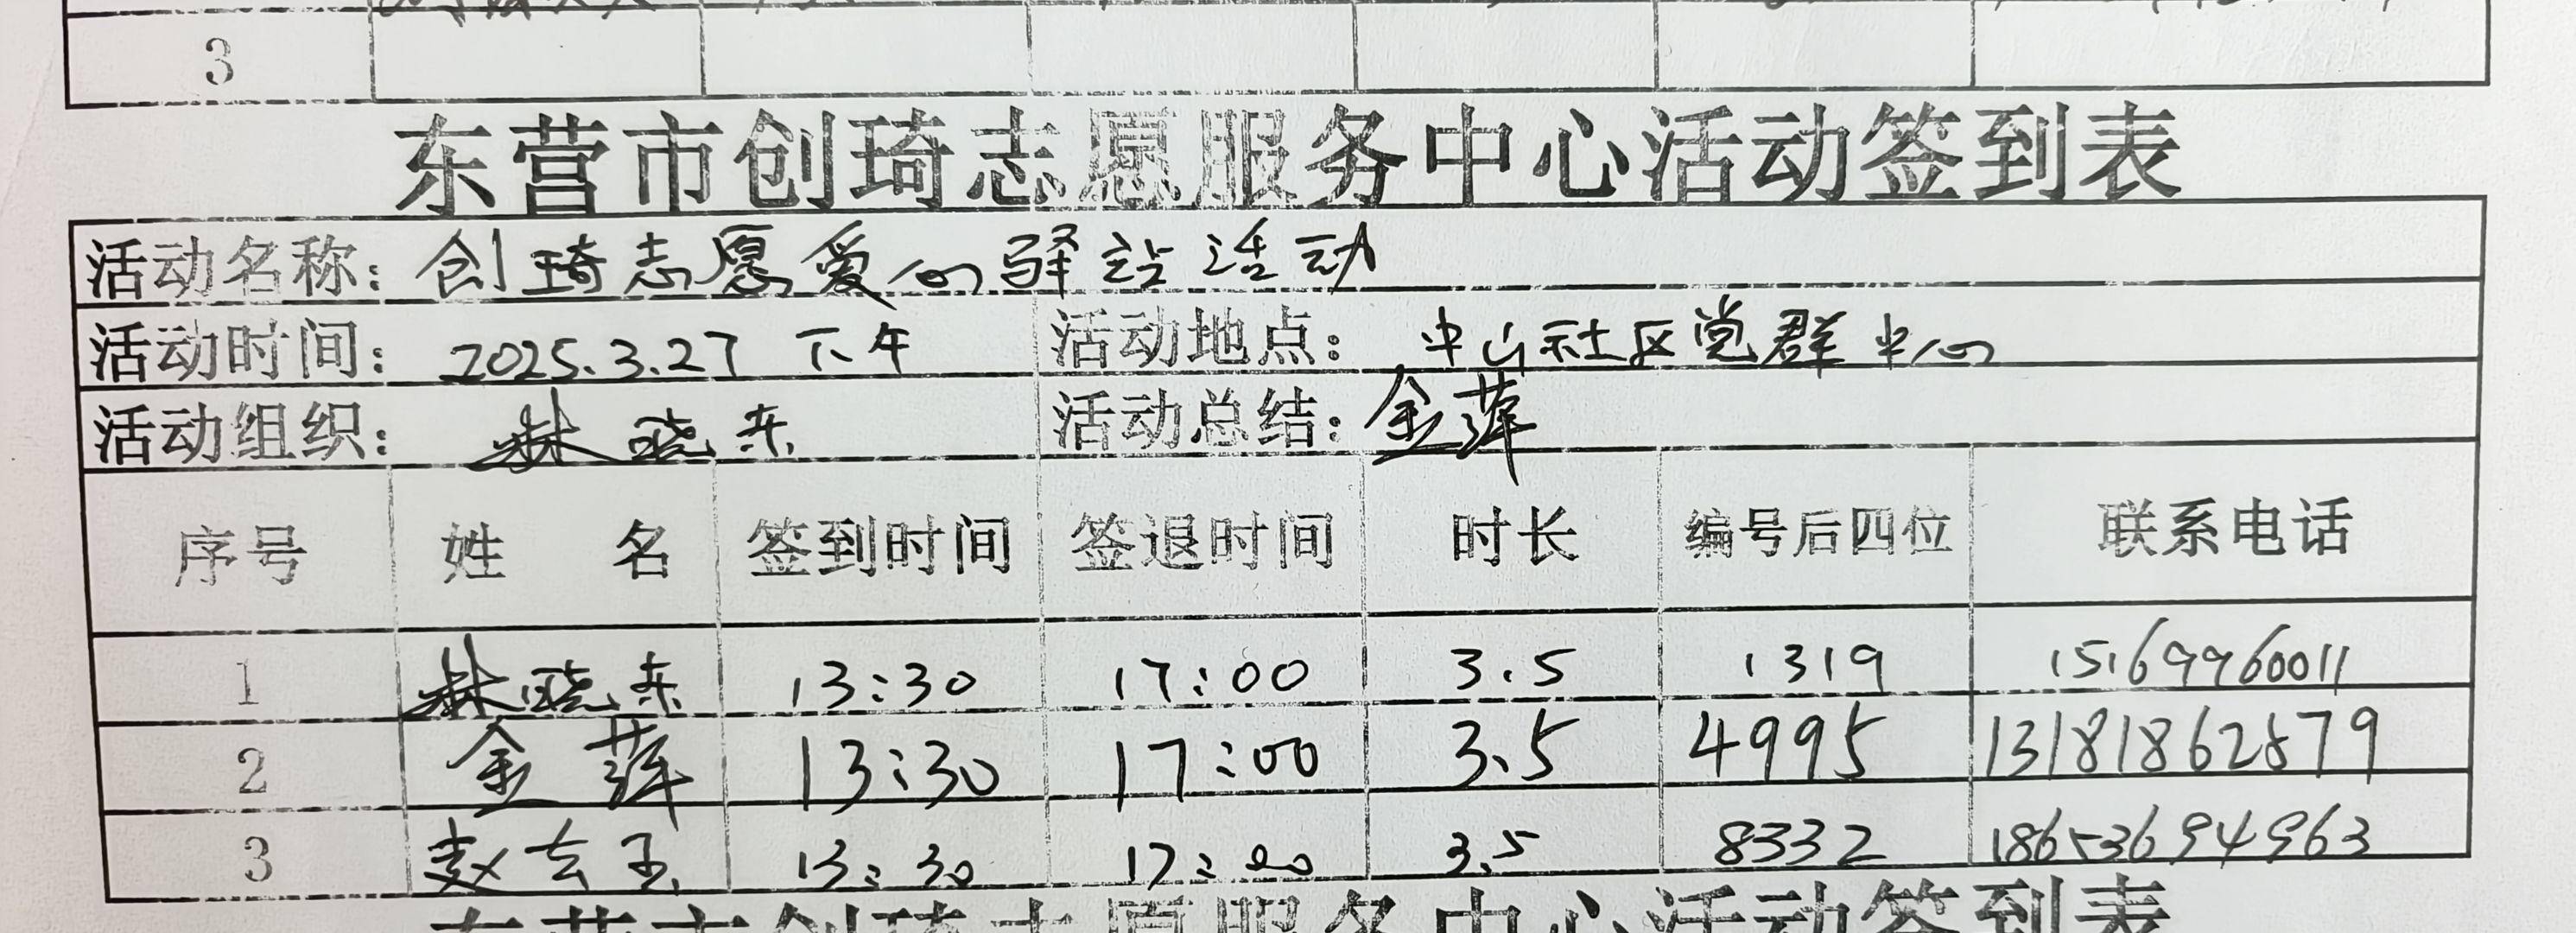 3
东营市创琦志愿服务中心活动签到表
活动名称：创琦志愿爱心驿站活动
活动时间：2025.3.27 下午 活动地点：中山社区党群中心
活动组织：林晓东 活动总结：金萍
序号 姓 名 签到时间 签退时间 时长 编号后四位 联系电话
1 林晓东 13:30 17:00 3.5 1319 15169960011
2 金萍 13:30 17:00 3.5 4995 13181862879
3 赵玄玉 13:30 17:00 3.5 8332 18653694963
东营市创琦志愿服务中心活动签到表